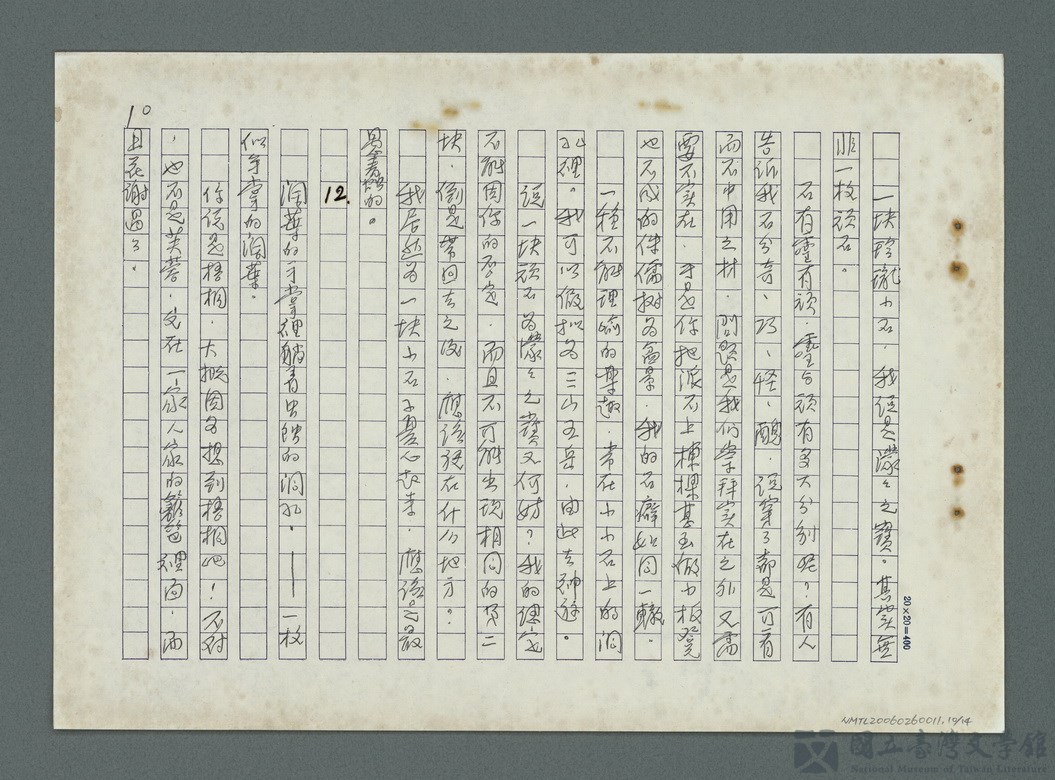 一块玲瓏小石，我經是濛濛之寶。其实無
非一枚頑石。
石有靈有頑，靈与頑有多大分別呢？有人
告訴我石分奇、巧、怪、醜，说穿了都是可有
而不中用之材，問題是我们崇拜实在之外又需
要不实在，于是你把派不上棟樑甚至做小板凳
也不成的侏儒樹為盆景，我的石癖如同一轍。
一種不能理喻的樂趣，常在小小石上的洞
孔裡。我可以假拟為三山五岳，由此去神遊。
说一块頑石為濛濛之寶又何妨？我的
不能因你的否定，而且不可能出現相同的第二
块，倒是帶回去之後，應該放在什么地方？
我居然為一块小石子憂心起来，應該是最
愚蠢的。
12.
闊葉的手掌裡躺着虫蝕的洞孔。——一枚
似手掌的闊葉。
你说是梧桐，大概因為想到梧桐吧！不对
，也不是芙蓉，它在一家人家的籬笆裡面，而
且花谢過了。
10
20×20=400
NMTL20060260011,10/14
國立臺灣文學館
National Museum of Taiwan Literature